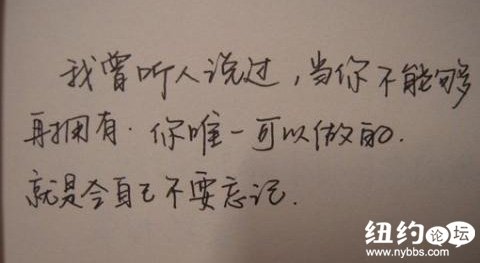 我曾听人说过，当你不能够
再拥有．你唯一可以做的．
就是令自己不要忘记．
纽约论坛
www.nybbs.com